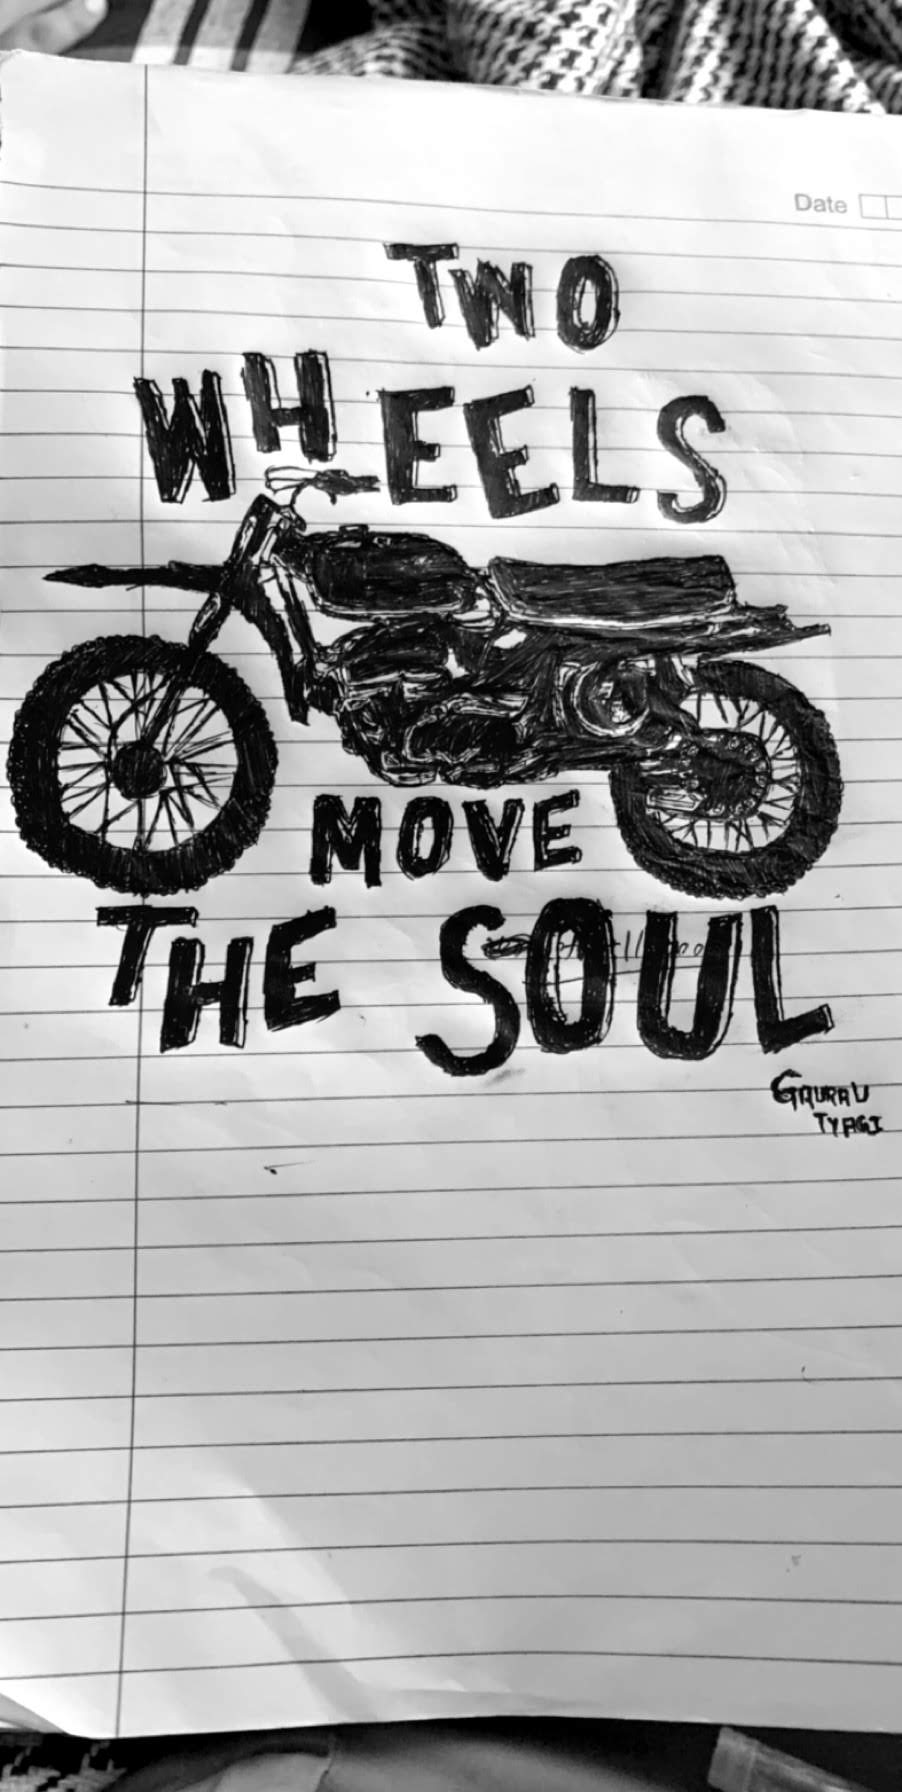 Date
TWO
WHEELS
MOVE
THE SOUL
GAURAV
TYAGI